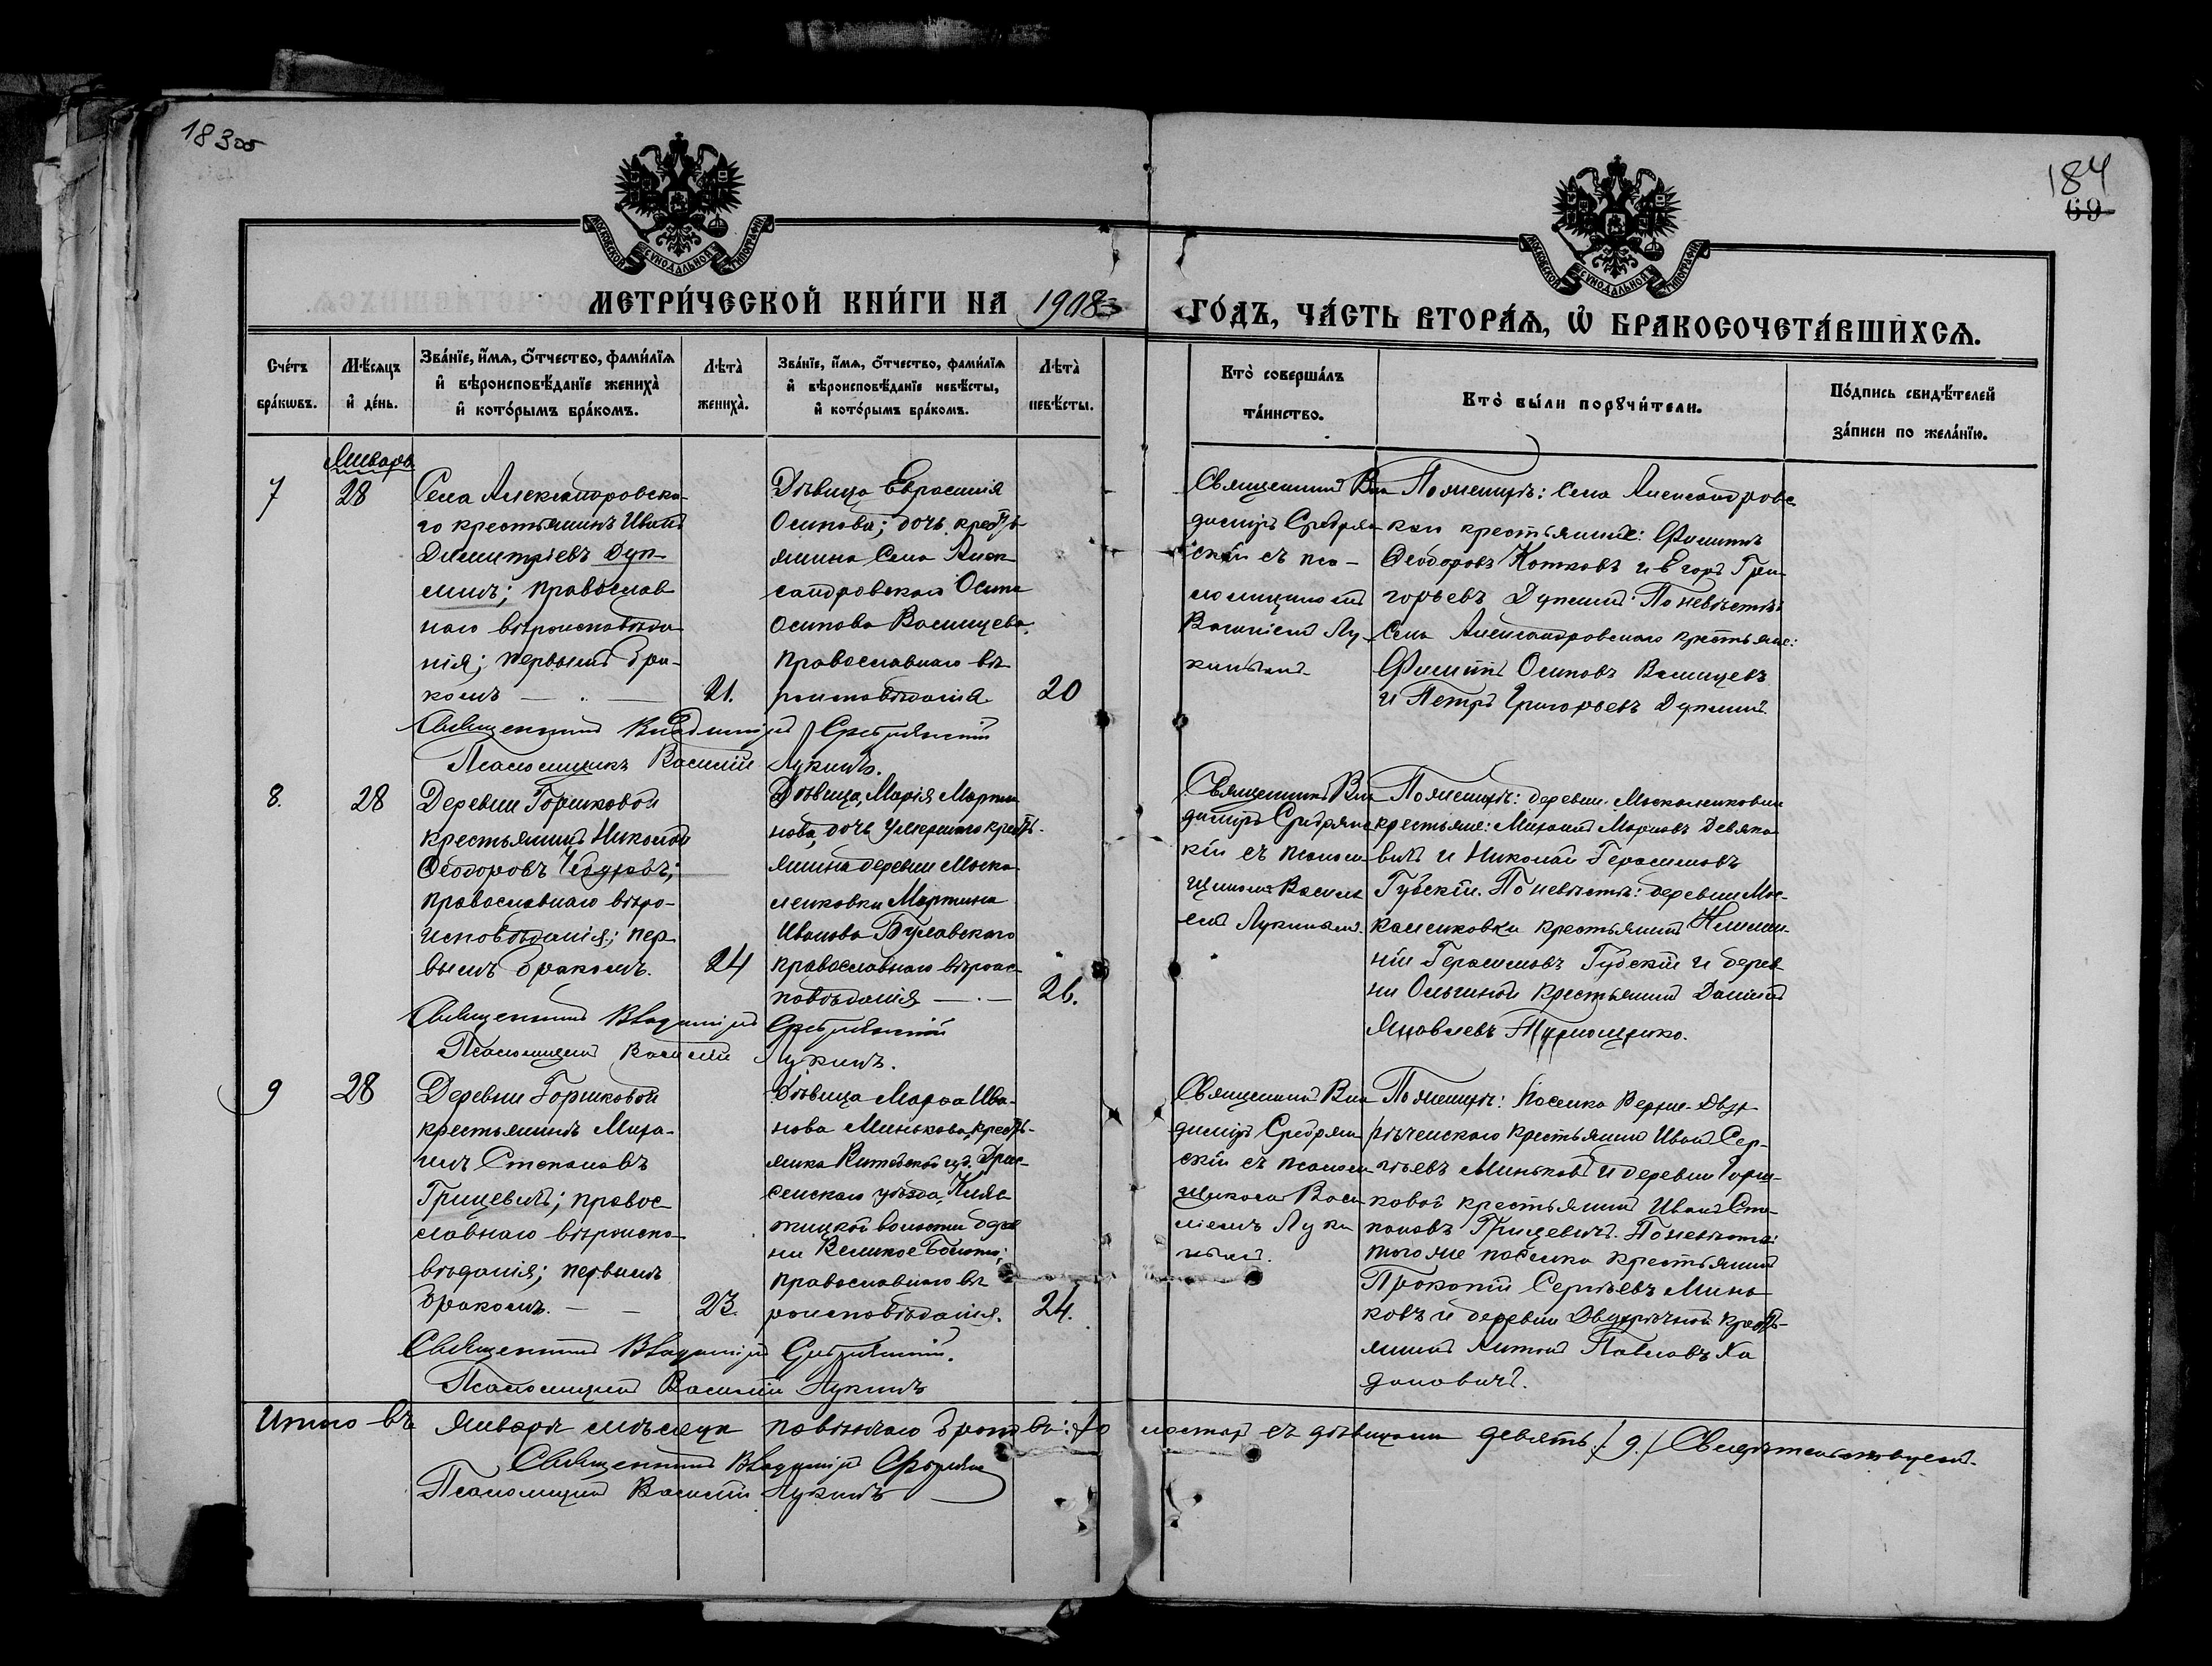 183об
184
69
МОСКОВСКОЙ СѴНОДАЛЬНОЙ ТИПОГРАФІИ
МОСКОВСКОЙ СѴНОДАЛЬНОЙ ТИПОГРАФІИ
МЕТРИ́ЧЕСКОЙ КНИ́ГИ НА 1908
ГО́ДЪ, ЧА́СТЬ ВТОРА́Ѧ, Ѡ҆ БРАКОСОЧЕТА́ВШИХСѦ.
Сче́тъ
бра́кѡвъ.
Мѣ́сѧцъ
и҆ де́нь.
Зва́нїе, и҆́мѧ, ѻ҆́тчество, фами́лїѧ
и҆ вѣроисповѣ́данїе жениха̀
и҆ кото́рымъ бра́комъ.
Лѣта̀
жениха̀.
Зва́нїе, и҆́мѧ, ѻ҆́тчество, фами́лїѧ
и҆ вѣроисповѣ́данїе невѣ́сты,
и҆ кото́рымъ бра́комъ.
Лѣта̀
невѣ́сты.
Кто̀ соверша́лъ
та́инство.
Кто̀ бы́ли порꙋчи́тели.
По́дпись свидѣ́телей
за́писи по жела́нїю.
Январь
7
28
Села Александровска-
го крестьянинъ Иванъ
Димитріевъ Дуп-
линъ; православ
наго вѣроисповѣда
нія; первымъ бра-
комъ
21.
Дѣвица Евраснія
Осипова; дочь кресть-
янина Села Алек-
сандровскаго Осипа
Осипова Ванищева,
православнаго вѣ-
роисповѣданія
20
Священникъ Вла
диміръ Сребрян
скій съ пса-
ломщикомъ
Василіемъ Лу-
кинымъ.
По женихѣ: Села Александровс
каго крестьяне: Филиппъ
Ѳеодоровъ Котковъ и Егоръ Гри-
горьевъ Дуплинъ. По невѣстѣ:
Села Александровскаго крестьяне:
Филиппъ Осиповъ Ванищевъ
и Петръ Григорьевъ Дуплинъ.
Священникъ Владиміръ Сребрянскій
Псаломщикъ Василій Лукинъ.
8.
28
Деревни Горшковой
крестьянинъ Николай
Ѳеодоровъ
православнаго вѣро-
исповѣданія; пер-
вымъ бракомъ.
24
Дѣвица, Марія Марти
нова, дочь умершаго кресть-
янина деревни Моска-
ленковки Мартина
Иванова Булавскаго
православнаго вѣроис-
повѣданія
26.
Священникъ Вла
диміръ Сребрянс
кій съ псалом
щикомъ Васил
емъ Лукинымъ.
По женихѣ: деревни Москаленковки
крестьяне: Михаилъ Марковъ Девяко-
вичъ и Николай Герасимовъ
Губскій. По невѣстѣ: деревни Мос-
каленковки крестьянинъ
Герасимовъ Губскій и дерев
ни Ольгиной крестьянинъ Даніилъ
Яковлевъ
Священникъ Владиміръ Сребрянскій
Псаломщикъ Василій Лукинъ.
9
28
Деревни Горшковой
крестьянинъ Миха-
илъ Степановъ
Грицевичъ; правос
лавнаго вѣроиспо-
вѣданія; первымъ
бракомъ.
23.
Дѣвица Марѳа Ива-
нова Минькова, кресть-
янка Витебской губ. Дрис-
сенскаго уѣзда, Клясь
тицкой волости дерев
ни Великое Болото;
православнаго вѣ
роисповѣданія.
24.
Священникъ Вла
диміръ Сребрян
скій съ псалом
щикомъ Васи
ліемъ Луки
нымъ.
По женихѣ: Поселка Верхне-Двух
рѣченскаго крестьянинъ Иванъ Сер-
гѣевъ Миньковъ и деревни Горш-
ковой крестьянинъ Иванъ Сте-
пановъ Грицевичъ. По невѣстѣ:
того же поселка крестьянинъ
Прокопій Сергѣевъ Минь
ковъ и деревни Двухрѣчной кресть-
янинъ Антонъ Павловъ Ха
дановичъ.
Священникъ Владиміръ Сребрянскій.
Псаломщикъ Василій Лукинъ
Итого въ январѣ мѣсяцѣ повѣнчано браковъ: холостыхъ съ дѣвицами девять /9./ Свидѣтельствуемъ.
Священникъ Владиміръ Сребрянскій
Псаломщикъ Василій Лукинъ